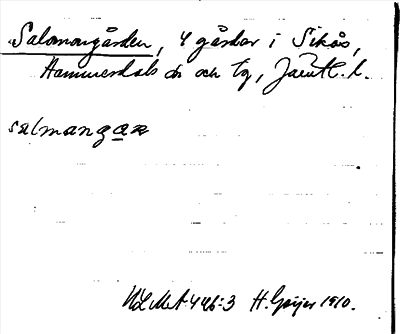 Salomongården, 4 gårdar i Sikås,
Hammerdals sn och tg, Jämtl. l.
salmangaṉ
H. Geijer 1910.